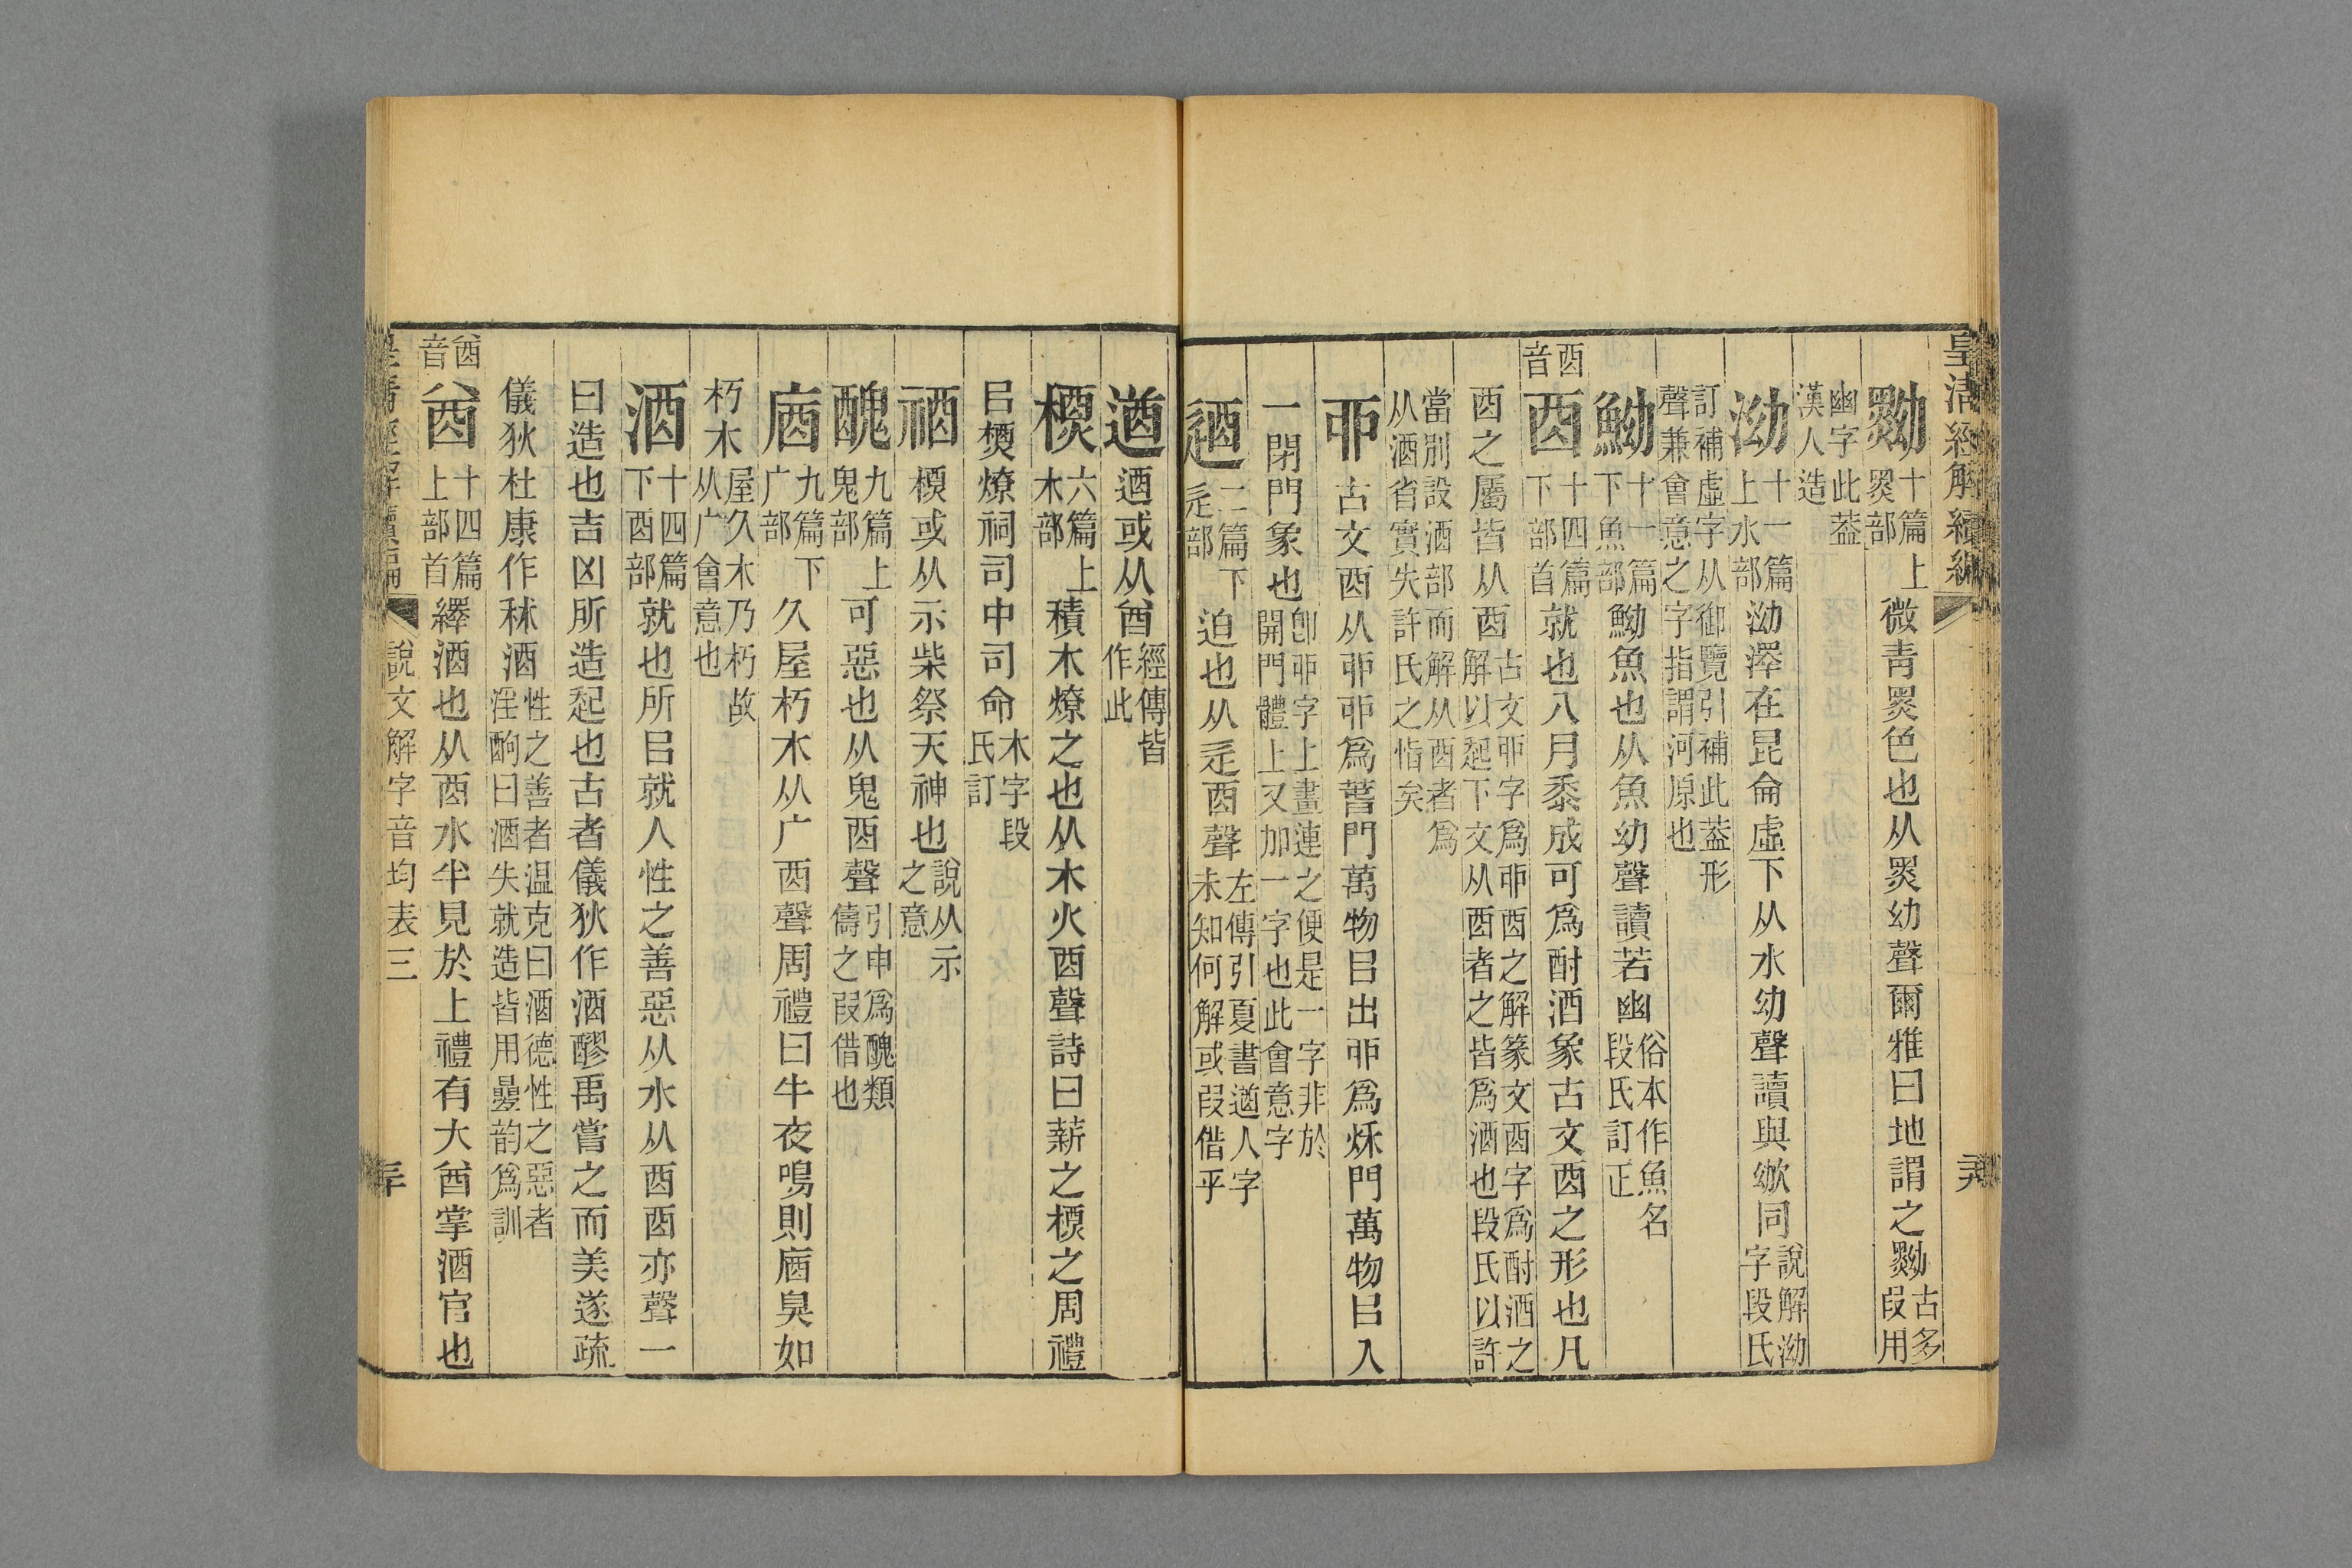 皇清經解續編
黝十篇上㷅部微青㷅色也从㷅幼聲爾雅曰地謂之黝古多叚用
幽字此葢漢人造
泑十一篇上水部泑澤在昆侖虛下从水幼聲讀與㴲同說解泑字段氏
訂補虛字从御覽引補此葢形聲兼會意之字指謂河原也
䱂十一篇下魚部䱂魚也从魚幼聲讀若幽俗本作魚名段氏訂正
酉音
酉十四篇下部首就也八月黍成可爲酎酒象古文酉之形也凡
酉之屬皆从酉古文丣字爲丣酉之解篆文酉字爲酎酒之解以起下文从酉者之皆爲酒也段氏以許
當別設酒部而解从酉者爲从酒省實失許氏之恉矣
丣古文酉从丣丣爲萅門萬物㠯出丣爲秌門萬物㠯入
一閉門象也卽丣字上畫連之便是一字非於開門體上又加一字也此會意字
逎二篇下辵部迫也从辵酉聲左傳引夏書遒人字未知何解或叚借乎
遒逎或从酋經傳皆作此
槱六篇上木部積木燎之也从木火酉聲詩曰薪之槱之周禮
㠯槱燎祠司中司命木字段氏訂
禉槱或从示柴祭天神也說从示之意
醜九篇上鬼部可惡也从鬼酉聲引申爲醜類儔之叚借也
庮九篇下广部久屋朽木从广酉聲周禮曰牛夜鳴則庮臭如
朽木屋久木乃朽故从广會意也
酒十四篇下酉部就也所㠯就人性之善惡从水从酉酉亦聲一
曰造也吉凶所造起也古者儀狄作酒醪禹嘗之而美遂疏
儀狄杜康作秫酒性之善者温克曰酒德性之惡者淫酗曰酒失就造皆用曡韵爲訓
酋音
酋十四篇上部首繹酒也从酉水半見於上禮有大酋掌酒官也
說文解字音均表三